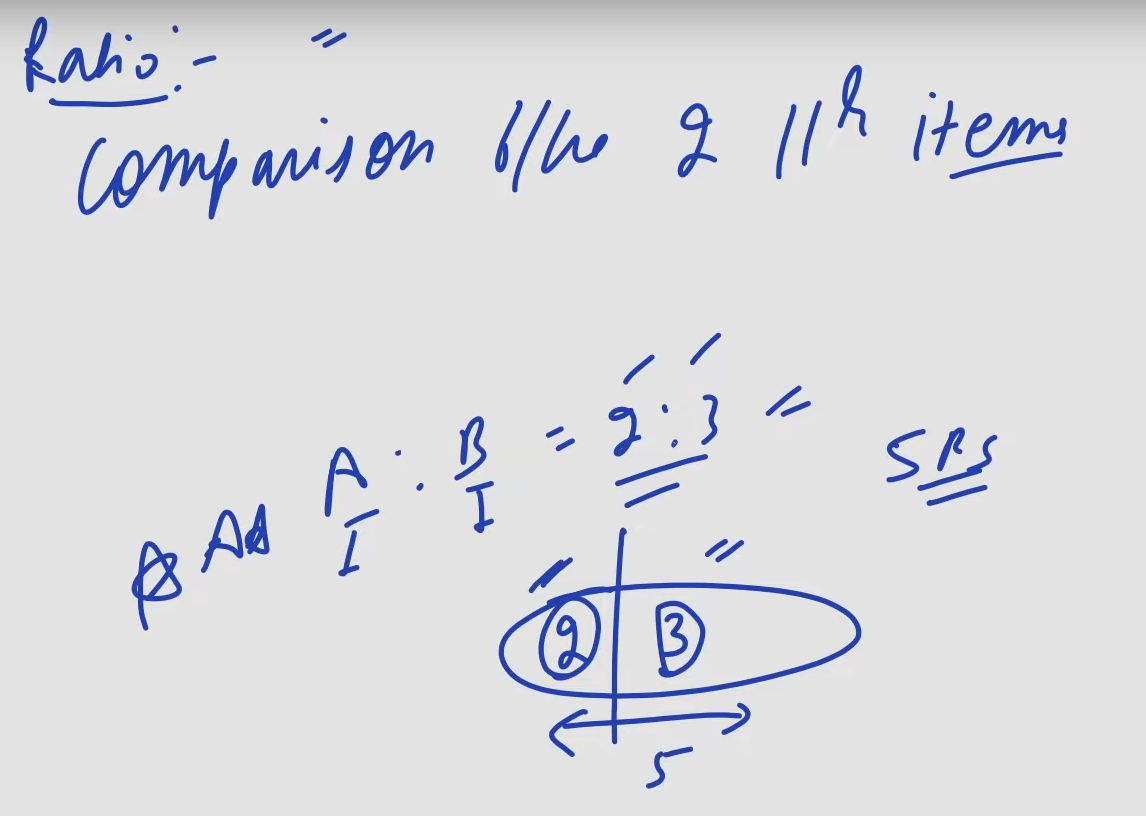 Ratio :-
Comparison b/w 2 11r items
A : B = 2 : 3
I I
2 3
5